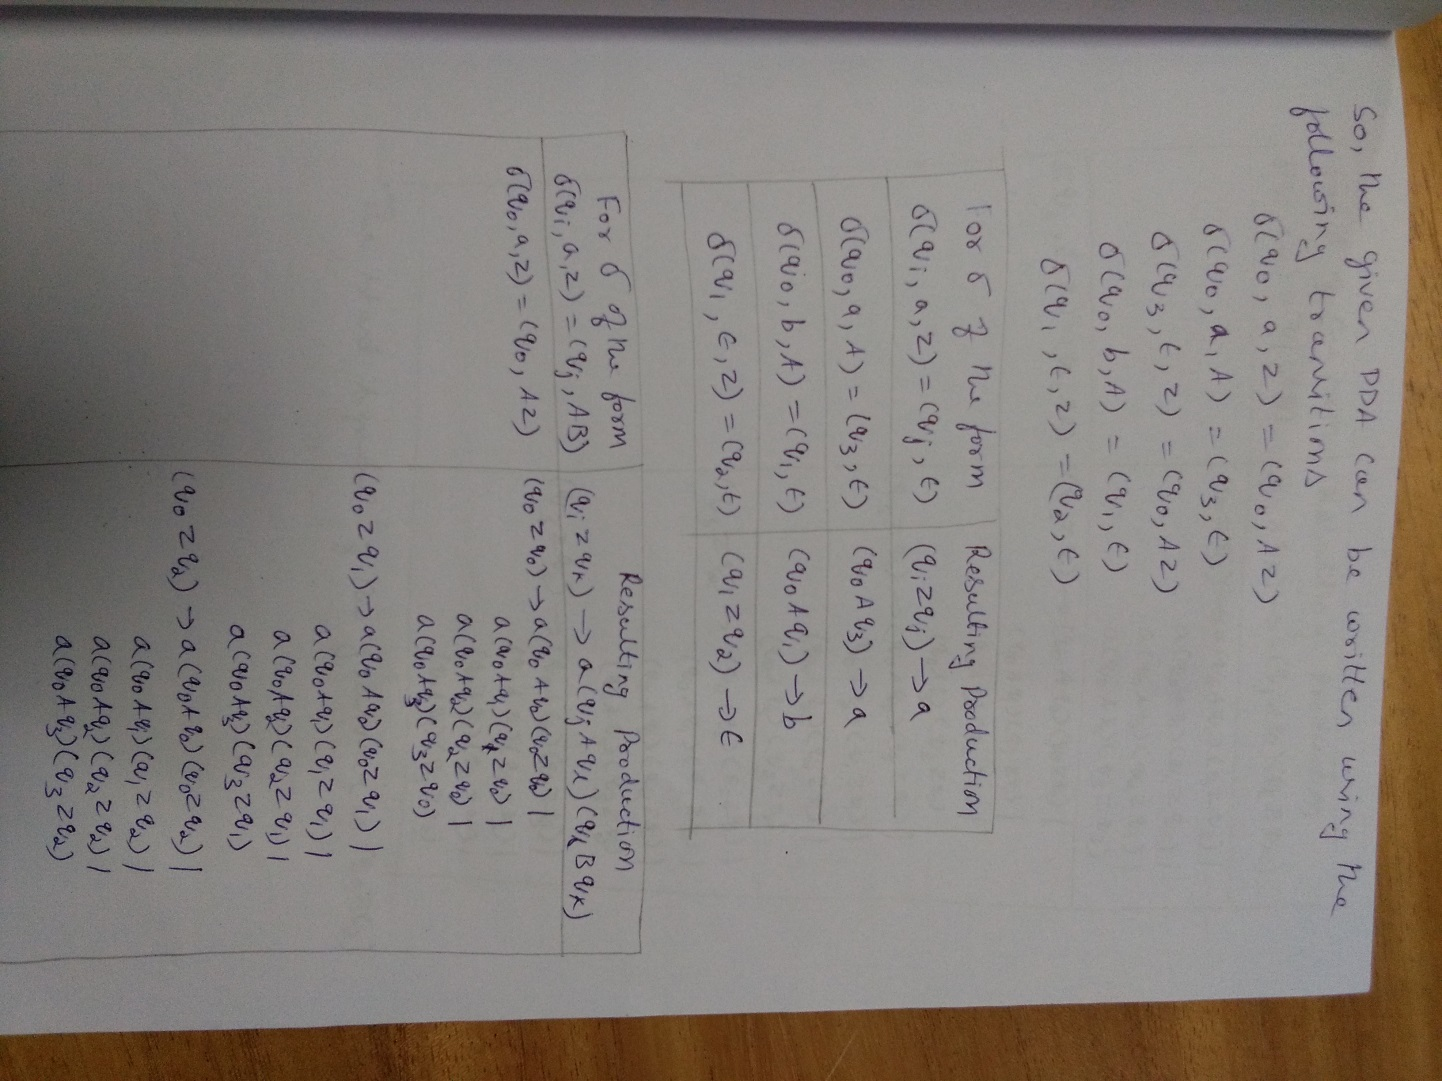 So, the given PDA can be written using the
following transitions
δ(q0, a, z) = (q0, Az)
δ(q0, a, A) = (q3, ε)
δ(q3, ε, z) = (q0, Az)
δ(q0, b, A) = (q1, ε)
δ(q1, ε, z) = (q2, ε)
For δ of the form Resulting Production
δ(qi, a, z) = (qj, ε) (qi z qj) → a
δ(q0, a, A) = (q3, ε) (q0 A q3) → a
δ(q0, b, A) = (q1, ε) (q0 A q1) → b
δ(q1, ε, z) = (q2, ε) (q1 z q2) → ε
For δ of the form Resulting Production
δ(qi, a, z) = (qj, AB) (qi z qk) → a(qj A ql)(ql B qk)
δ(q0, a, z) = (q0, Az) (q0 z q0) → a(q0 A q0)(q0 z q0) |
a(q0 A q1)(q1 z q0) |
a(q0 A q2)(q2 z q0) |
a(q0 A q3)(q3 z q0)
(q0 z q1) → a(q0 A q0)(q0 z q1) |
a(q0 A q1)(q1 z q1) |
a(q0 A q2)(q2 z q1) |
a(q0 A q3)(q3 z q1)
(q0 z q2) → a(q0 A q0)(q0 z q2) |
a(q0 A q1)(q1 z q2) |
a(q0 A q2)(q2 z q2) |
a(q0 A q3)(q3 z q2)